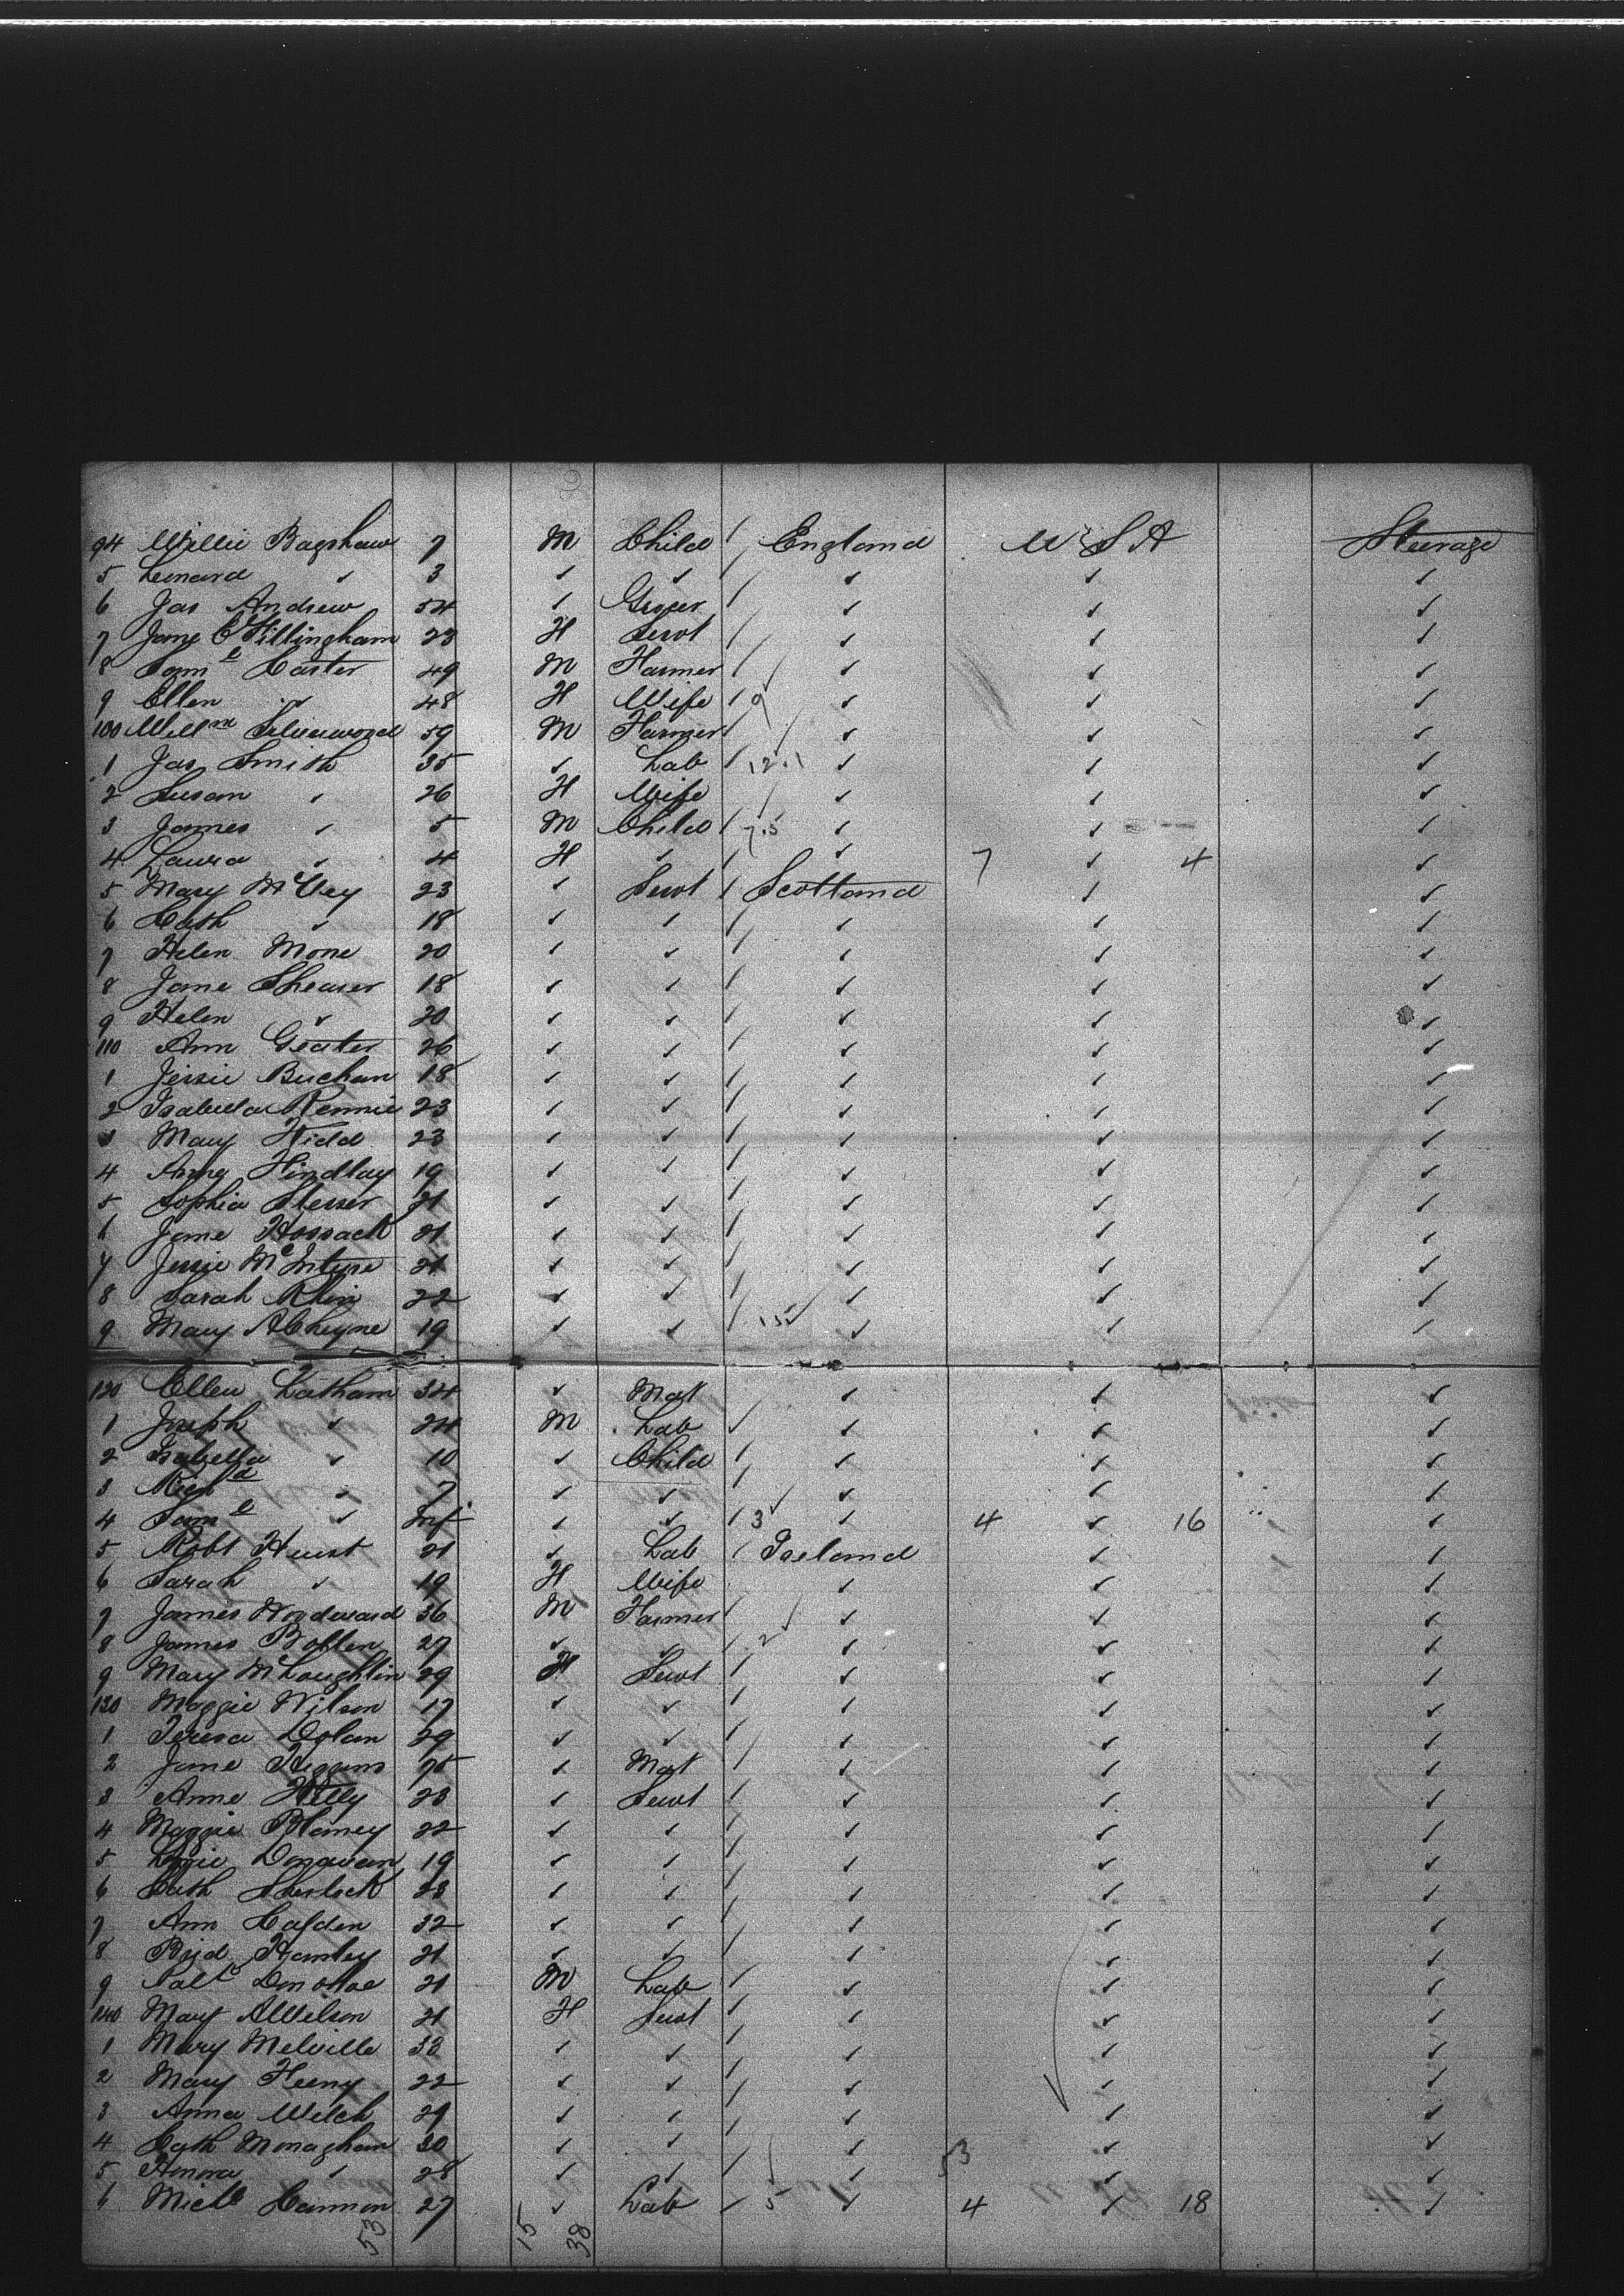 94 Willie Bagshaw 7 M Child / England U S A Steerage
5 Leonard ✓ 3 ✓ ✓ / ✓ ✓ ✓
6 Jas Andrew 54 ✓ Grocer / ✓ ✓ ✓
7 Jane E Fillingham 23 F Servt / ✓ ✓ ✓
8 Saml Carter 49 M Farmer / ✓ ✓ ✓
9 Ellen ✓ 48 F Wife / 9 ✓ ✓ ✓
100 Willm 59 M Farmer / ✓ ✓ ✓
1 Jas Smith 35 ✓ Lab / 12.1 ✓ ✓ ✓
2 Susan ✓ 26 F Wife / ✓ ✓ ✓
3 James ✓ 5 M Child / 7.5 ✓ ✓ ✓
4 Laura ✓ 4 F ✓ / ✓ 7 ✓ 4 ✓
5 Mary McVey 23 ✓ Servt / Scotland ✓ ✓
6 Cath ✓ 18 ✓ ✓ / ✓ ✓ ✓
7 Helen Mone 20 ✓ ✓ / ✓ ✓ ✓
8 Jane Shearer 18 ✓ ✓ / ✓ ✓ ✓
9 Helen ✓ 20 ✓ ✓ / ✓ ✓ ✓
110 Ann 26 ✓ ✓ / ✓ ✓ ✓
1 Jessie Buchan 18 ✓ ✓ / ✓ ✓ ✓
2 Isabella Rennie 23 ✓ ✓ / ✓ ✓ ✓
3 Mary Kidd 23 ✓ ✓ / ✓ ✓ ✓
4 Anne Findlay 19 ✓ ✓ / ✓ ✓ ✓
5 Sophia Slesser 21 ✓ ✓ / ✓ ✓ ✓
6 Jane Hossack 21 ✓ ✓ / ✓ ✓ ✓
7 Jessie McIntyre 21 ✓ ✓ / ✓ ✓ ✓
8 Sarah 22 ✓ ✓ / ✓ ✓ ✓
9 Mary A Cheyne 19 ✓ ✓ / 15 ✓ ✓ ✓
120 Ellen Latham 34 ✓ Mat / ✓ ✓ ✓
1 Joseph ✓ 24 M Lab ✓ ✓ ✓ ✓
2 Isabella ✓ 10 ✓ Child / ✓ ✓ ✓
3 Richd ✓ 7 ✓ ✓ / ✓ ✓ ✓
4 Saml ✓ Inf ✓ ✓ / 3 ✓ 4 ✓ 16 ✓
5 Robt Hurst 21 ✓ Lab / Ireland ✓ ✓
6 Sarah ✓ 19 F Wife ✓ ✓ ✓
7 James Woodward 36 M Farmer / ✓ ✓ ✓
8 James 27 ✓ ✓ / 2 ✓ ✓ ✓
9 Mary McLoughlin 29 F Servt / ✓ ✓ ✓
130 Maggie Wilson 17 ✓ ✓ / ✓ ✓ ✓
1 Teresa Dolan 29 ✓ ✓ / ✓ ✓ ✓
2 Jane 75 ✓ Mat / ✓ ✓ ✓
3 Anne Kelly 23 ✓ Servt / ✓ ✓ ✓
4 Maggie Blaney 22 ✓ ✓ / ✓ ✓ ✓
5 Lizzie Donavan 19 ✓ ✓ / ✓ ✓ ✓
6 Cath Sherlock 23 ✓ ✓ / ✓ ✓ ✓
7 Ann 32 ✓ ✓ / ✓ ✓ ✓
8 Brid Hanley 21 ✓ ✓ / ✓ ✓ ✓
9 Donohoe 21 M Lab / ✓ ✓ ✓
140 Mary A Wilson 21 F Servt / ✓ ✓ ✓
1 Mary Melville 33 ✓ ✓ / ✓ ✓ ✓
2 Mary Feeny 22 ✓ ✓ / ✓ ✓ ✓
3 Anna Welch 29 ✓ ✓ / ✓ ✓ ✓
4 Cath Monaghan 30 ✓ ✓ / ✓ 53 ✓ ✓
5 Honora ✓ 28 ✓ ✓ / ✓ ✓ ✓
6 Michl Cannon 27 ✓ Lab / 5 ✓ 4 ✓ 18 ✓
53 15 38